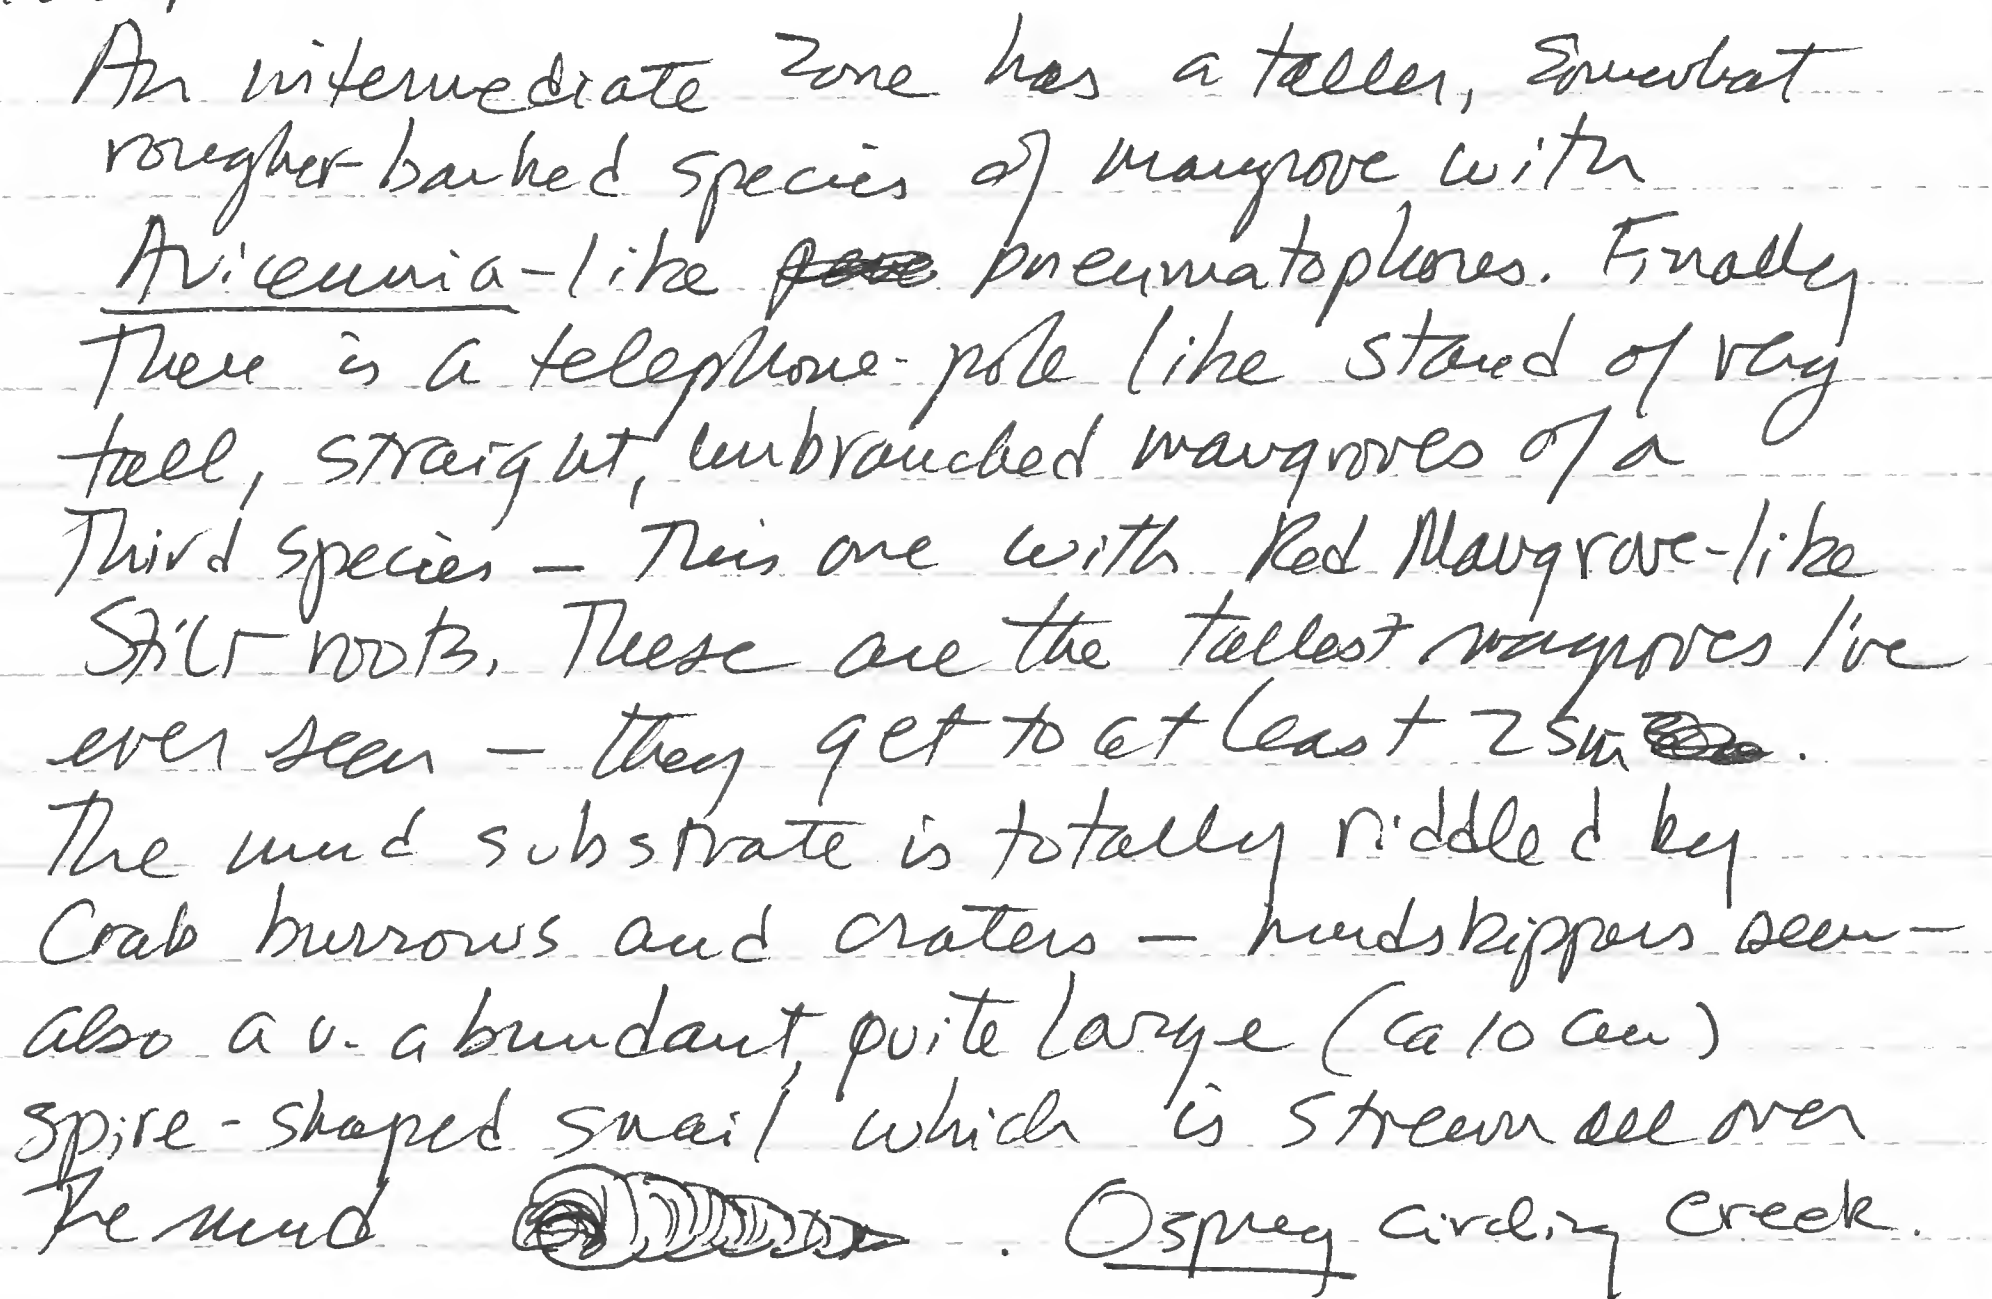 An intermediate zone has a taller, somewhat
rougher-barked species of mangrove with
Avicennia-like pneumatophores. Finally
There is a telephone-pole like stand of very
tall, straight, unbranched mangroves of a
Third species — This one with Red Mangrove-like
Stilt roots. These are the tallest magroves I've
ever seen — they get to at least 25m .
The mud substrate is totally riddled by
Crab burrows and craters — mudskippers seen —
also a v. abundant, quite large (ca 10 cm)
spire-shaped snail which is strewn all over
The mud . Osprey circling creek.